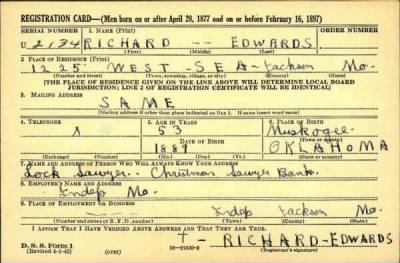 REGISTRATION CARD—(Men born on or after April 28, 1877 and on or before February 16, 1897)
SERIAL NUMBER 1. NAME (Print) ORDER NUMBER
U 2134 RICHARD -- EDWARDS
(First) (Middle) (Last)
2. PLACE OF RESIDENCE (Print)
1225 WEST - SEA - Jackson Mo.
(Number and street) (Town, township, village, or city) (County) (State)
[THE PLACE OF RESIDENCE GIVEN ON THE LINE ABOVE WILL DETERMINE LOCAL BOARD
JURISDICTION; LINE 2 OF REGISTRATION CERTIFICATE WILL BE IDENTICAL]
3. MAILING ADDRESS
SAME
[Mailing address if other than place indicated on line 2. If same insert word same]
4. TELEPHONE 5. AGE IN YEARS 6. PLACE OF BIRTH
53 Muskogee
DATE OF BIRTH (Town or county)
1889 OKLAHOMA
(Exchange) (Number) (Mo.) (Day) (Yr.) (State or country)
7. NAME AND ADDRESS OF PERSON WHO WILL ALWAYS KNOW YOUR ADDRESS
Lock Sawyer.. Christman Sawyer Bank.
8. EMPLOYER'S NAME AND ADDRESS
Indep Mo.
9. PLACE OF EMPLOYMENT OR BUSINESS
Indep Jackson Mo.
(Number and street or R. F. D. number) (Town) (County) (State)
I AFFIRM THAT I HAVE VERIFIED ABOVE ANSWERS AND THAT THEY ARE TRUE.
D. S. S. Form 1
(Revised 4-1-42) (over) 16—21630-2 RICHARD-EDWARDS
(Registrant's signature)